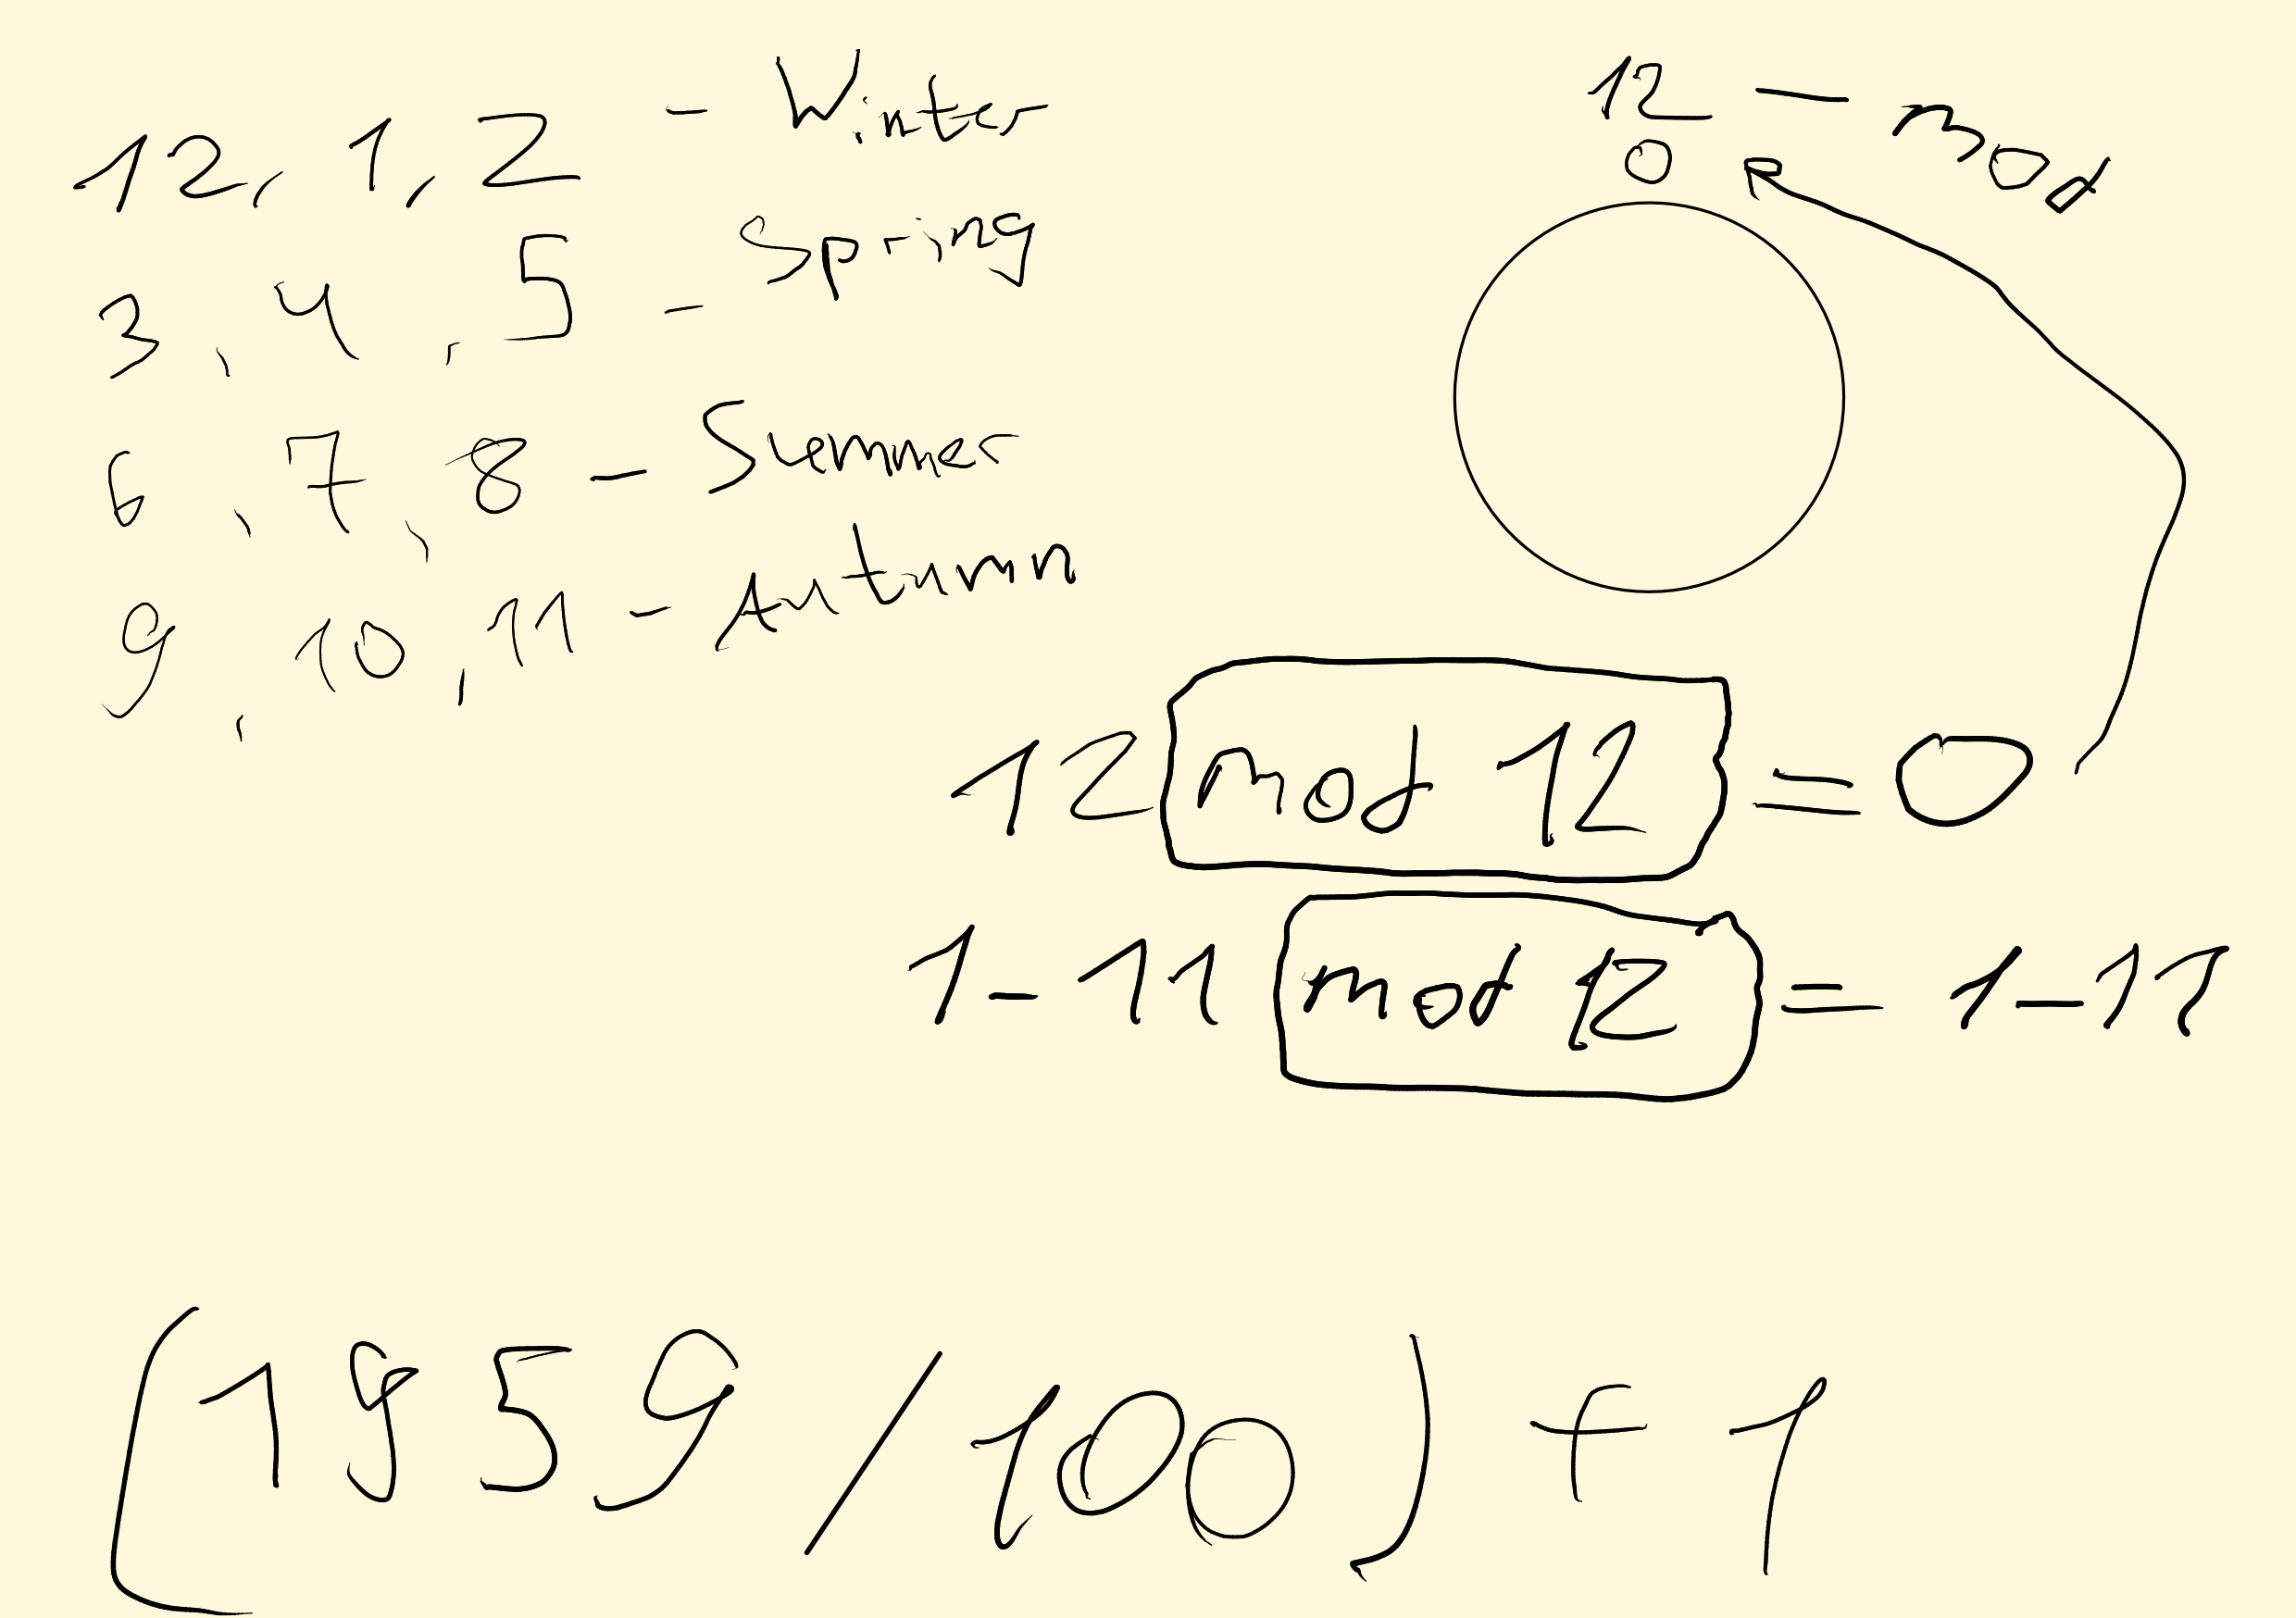 12, 1, 2 - Winter
3, 4, 5 - Spring
6, 7, 8 - Summer
9, 10, 11 - Autumn
12 - mod
0
12 mod 12 = 0
1-11 mod 12 = 1-11
(1959/100) + 1